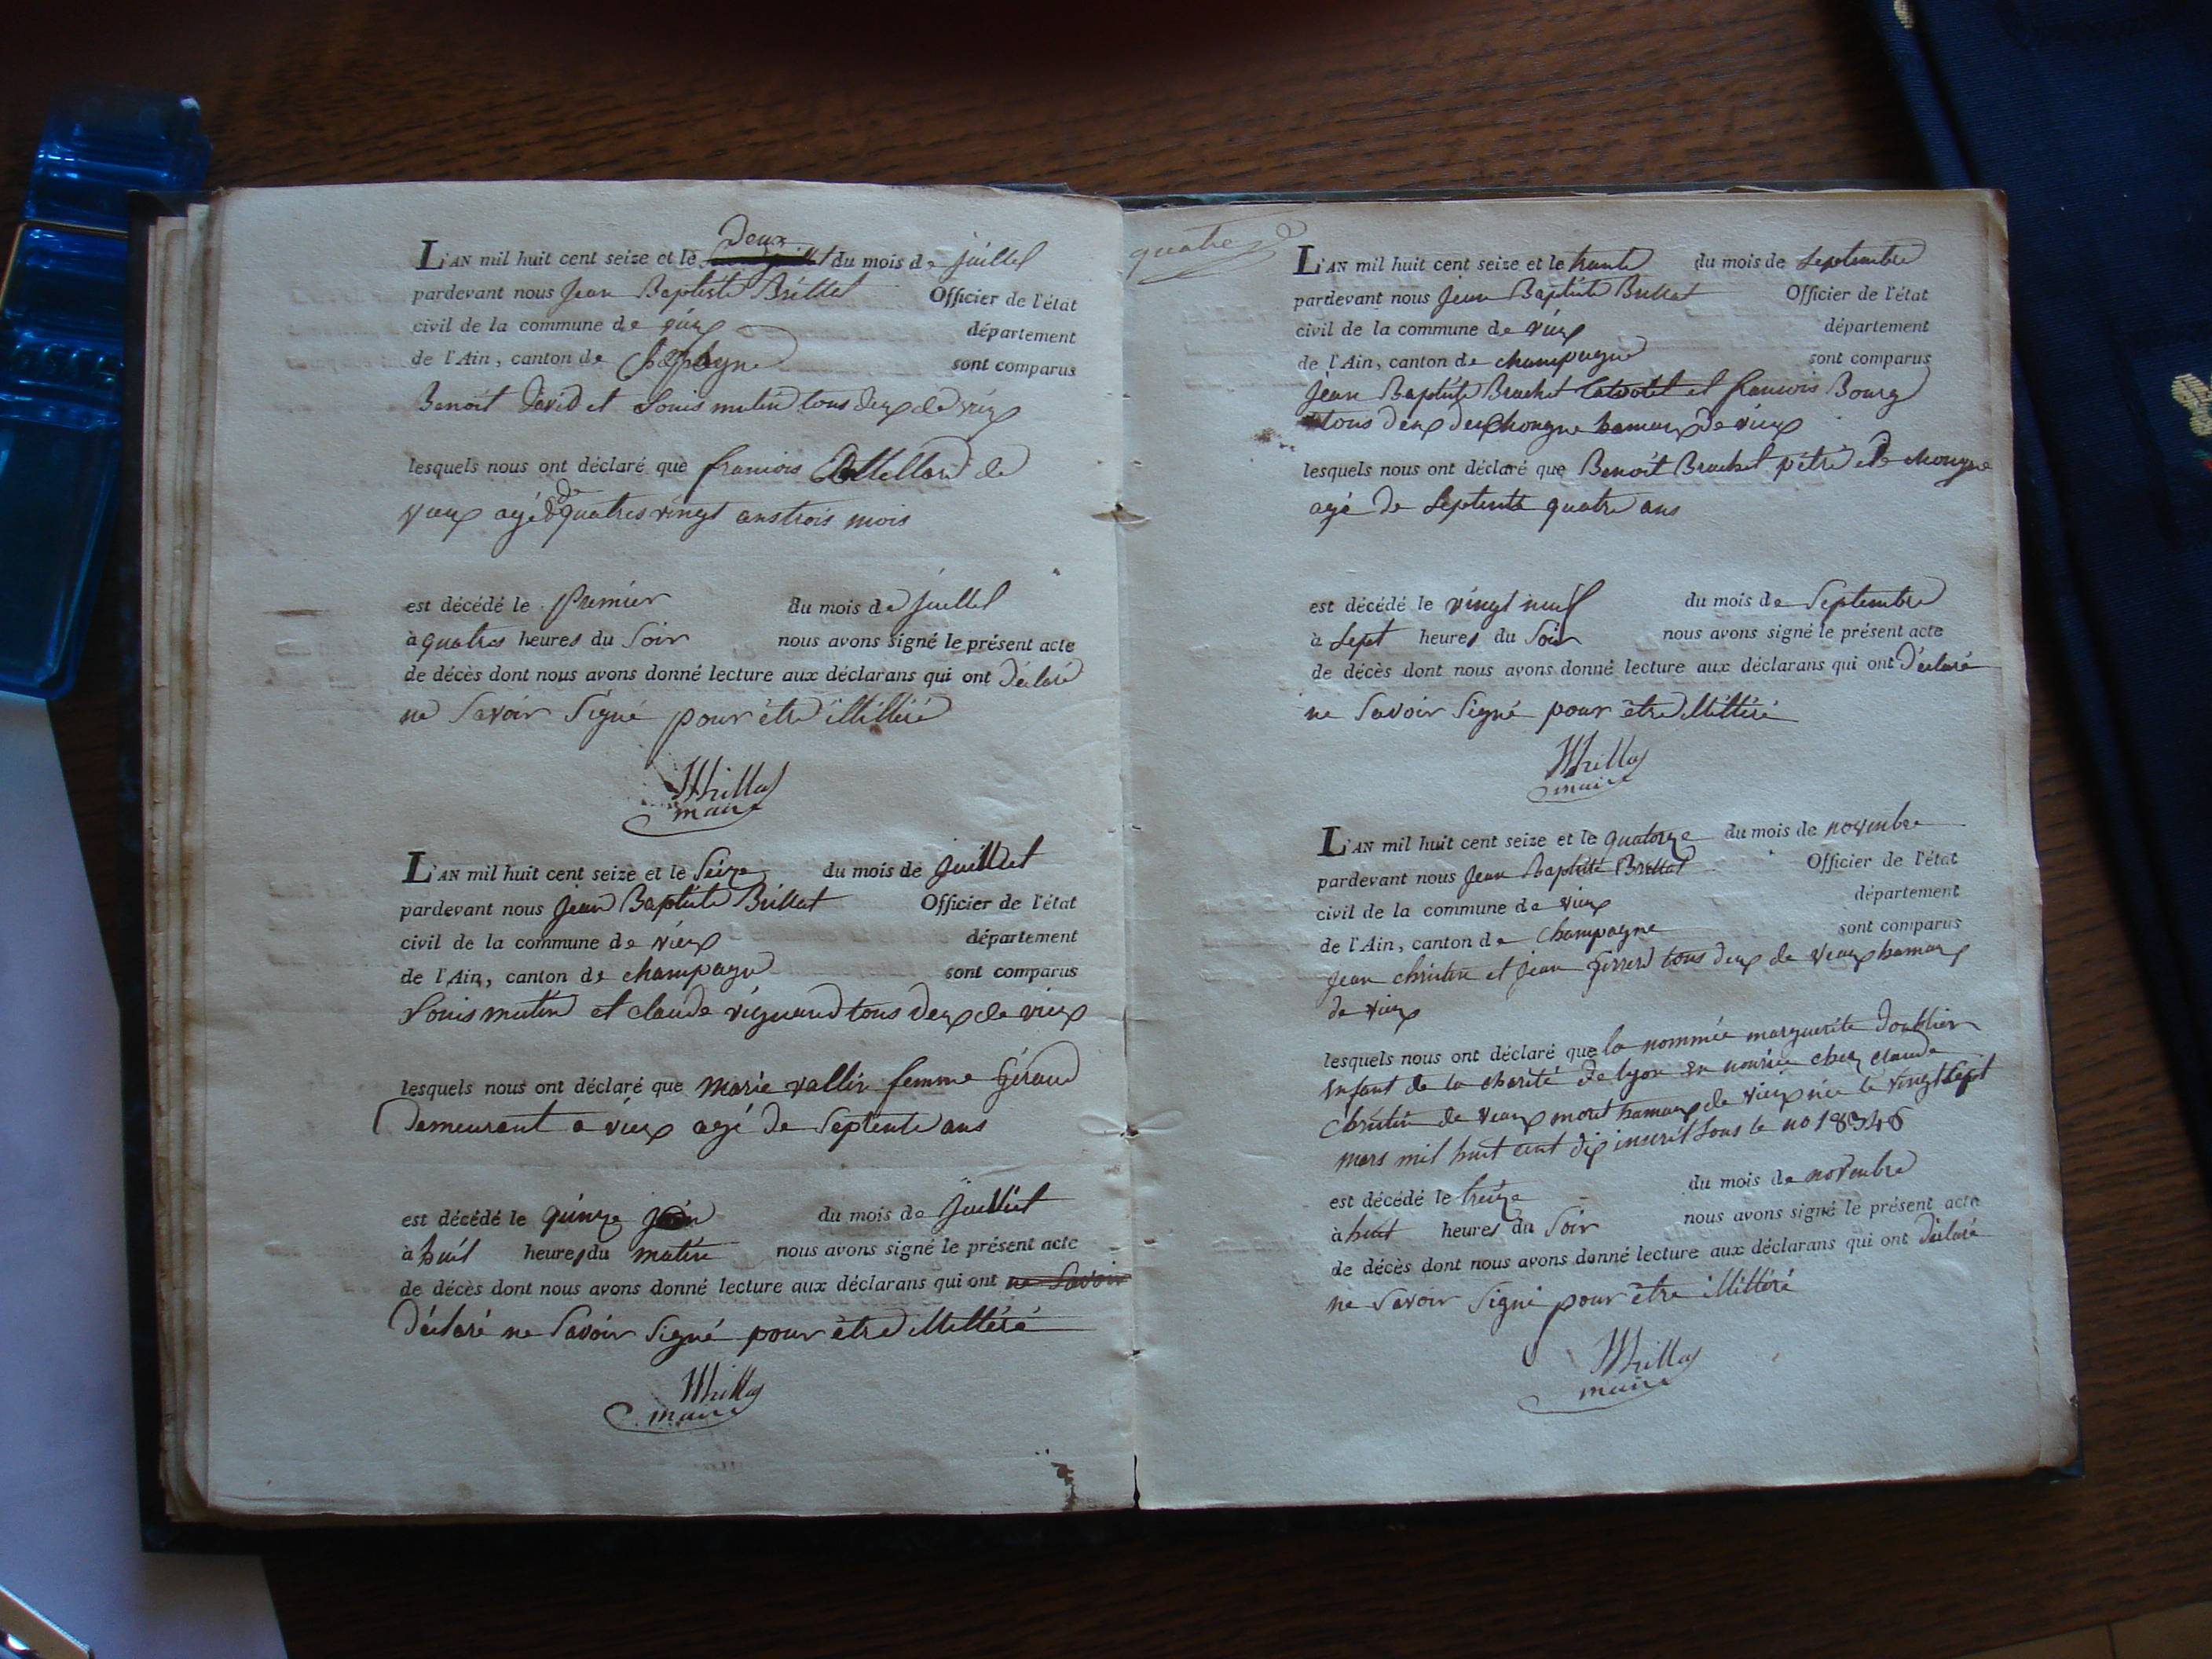 Deux
L'AN mil huit cent seize et le du mois de juillet
pardevant nous Jean Baptiste Brillat Officier de l'état
civil de la commune de vieux département
de l'Ain, canton de Champagne sont comparus
Benoit David et Louis mutin tous deux de vieux
lesquels nous ont déclaré que francois de
vieux agé de quatres vingt ans trois mois
est décédé le Premier du mois de juillet
à quatres heures du Soir nous avons signé le présent acte
de décès dont nous avons donné lecture aux déclarans qui ont déclaré
ne Savoir Signé pour être illittéré
Brillat
maire
L'AN mil huit cent seize et le Seize du mois de juillet
pardevant nous Jean Baptiste Brillat Officier de l'état
civil de la commune de vieux département
de l'Ain, canton de champagne sont comparus
Louis mutin et claude vignand tous deux de vieux
lesquels nous ont déclaré que marie vallin femme géraud
Demeurant a vieux agé de Septente ans
est décédé le quinze du mois de juillet
à huit heures du matin nous avons signé le présent acte
de décès dont nous avons donné lecture aux déclarans qui ont ne Savoir
déclaré ne Savoir Signé pour être illittéré
Brillat
maire
quatre
L'AN mil huit cent seize et le trente du mois de Septembre
pardevant nous Jean Baptiste Brillat Officier de l'état
civil de la commune de vieux département
de l'Ain, canton de champagne sont comparus
Jean Baptiste Brachet et francois Bourg
tous deux de chongne hamaux de vieux
lesquels nous ont déclaré que Benoit Brachet de chongne
agé de Septente quatre ans
est décédé le vingt neuf du mois de Septembre
à Sept heures du Soir nous avons signé le présent acte
de décès dont nous avons donné lecture aux déclarans qui ont déclaré
ne Savoir Signé pour être illittéré
Brillat
maire
L'AN mil huit cent seize et le quatorze du mois de novembre
pardevant nous Jean Baptiste Brillat Officier de l'état
civil de la commune de vieux département
de l'Ain, canton de Champagne sont comparus
Jean christin et Jean tous deux de hamaux
de vieux
lesquels nous ont déclaré que la nommée marguerite Doublier
Enfant de la charité de lyon en nourice chez claude
christin de hamaux de vieux née le vingt Sept
mars mil huit cent dix inscrit Sous le no 18346
est décédé le treize du mois de novembre
à huit heures du Soir nous avons signé le présent acte
de décès dont nous avons donné lecture aux déclarans qui ont déclaré
ne Savoir Signé pour être illittéré
Brillat
maire